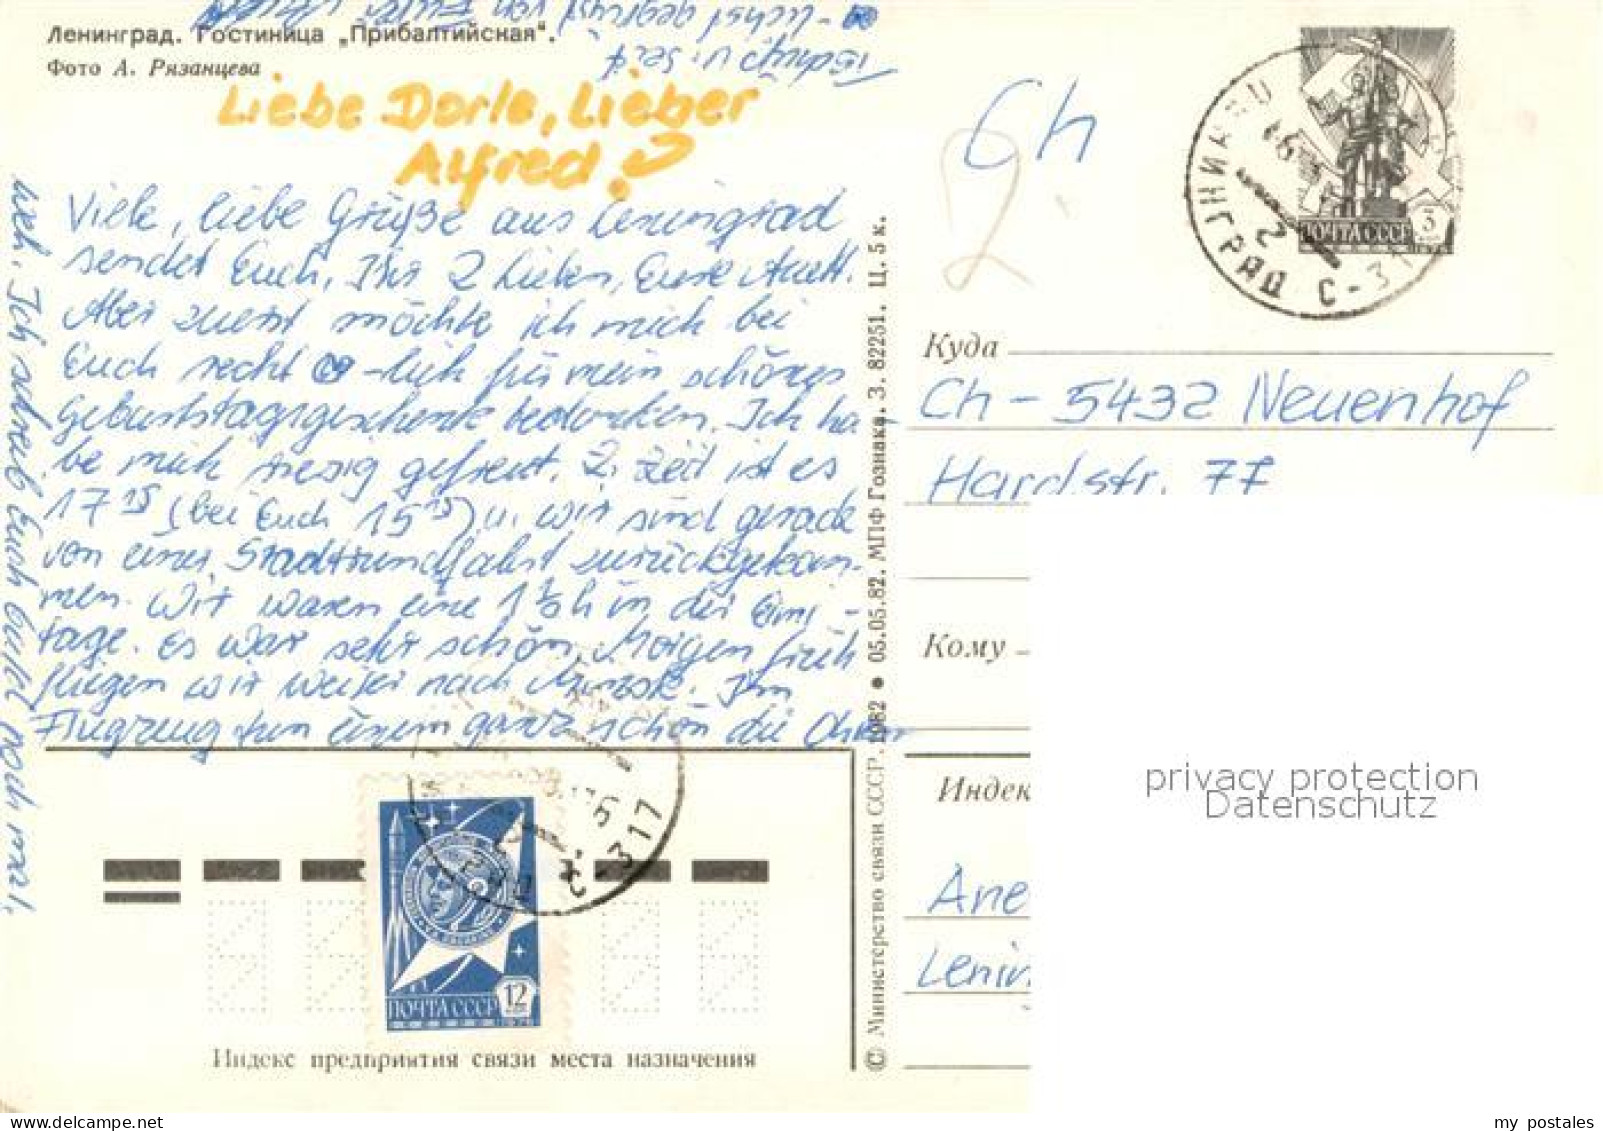 Ленинград. Гостиница „Прибалтийская“.
Фото А. Рязанцева
Liebe Dorle, Lieber
Alfred!
Viele, liebe Grüße aus Leningrad
sendet Euch, Ihr 2 Lieben, Eure Anett.
Aber zuerst möchte ich mich bei
Euch recht -lich für mein schönes
Geburtstagsgeschenk bedanken. Ich ha-
be mich riesig gefreut. Z. Zeit ist es
17 15 (bei Euch 15 15) u. wir sind gerade
von einer Stadtrundfahrt zurückgekom-
men. Wir waren eine 1 ½ h in der Ermi-
tage. Es war sehr schön. Morgen früh
fliegen wir weiter nach Minsk. Im
Flugzeug tun einem ganz schön die Ohren
weh. Ich schreib Euch bald noch mal,
-lichst gegrüßt von Eurer
Ch
2.
ПОЧТА СССР 3
ЛЕНИНГРАД С-317
2
Куда
Ch - 5432 Neuenhof
Hardstr. 77
Кому
privacy protection
Datenschutz
Индек
Ane
Lenin
© Министерство связи СССР. 1982 ● 05.05.82. МПФ Гознака. З. 82251. Ц. 5 к.
ПОЧТА СССР 12
С-317
Индекс предприятия связи места назначения
my postales